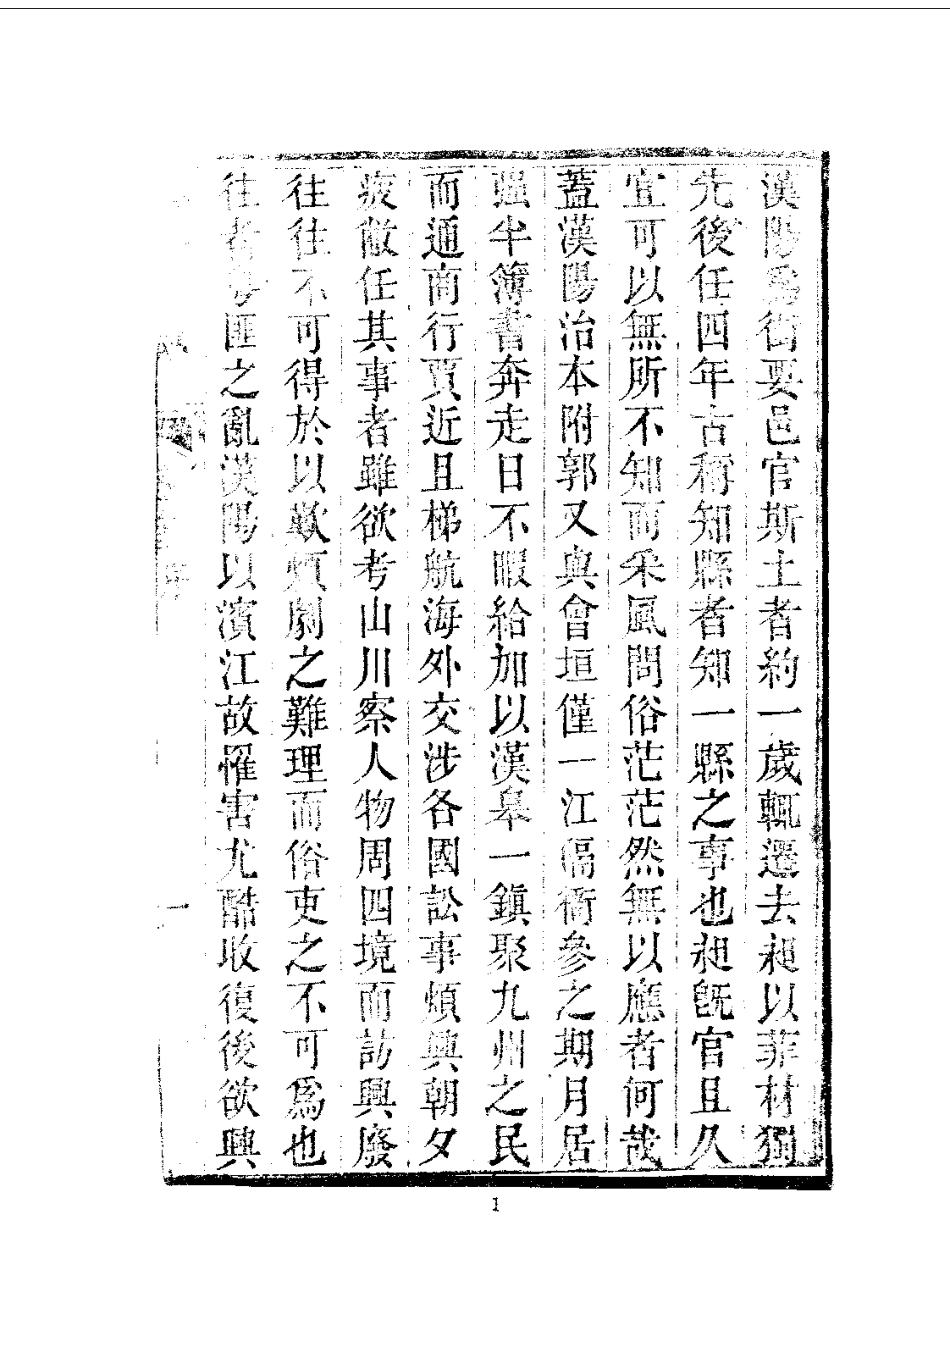 漢陽爲衝要邑官斯土者約一歲輒遷去昶以菲材獨
先後任四年古稱知縣者知一縣之事也昶旣官且久
宜可以無所不知而釆風問俗茫茫然無以應者何哉
蓋漢陽治本附郭又與會垣僅一江隔衙參之期月居
强半簿書奔走日不暇給加以漢皋一鎮聚九州之民
而通商行賈近且梯航海外交涉各國訟事煩興朝夕
疲敝任其事者雖欲考山川察人物周四境而訪興廢
往往不可得於以歎煩劇之難理而俗吏之不可爲也
往者粵匪之亂漢陽以濱江故罹害尤酷收復後欲興
序
一
1